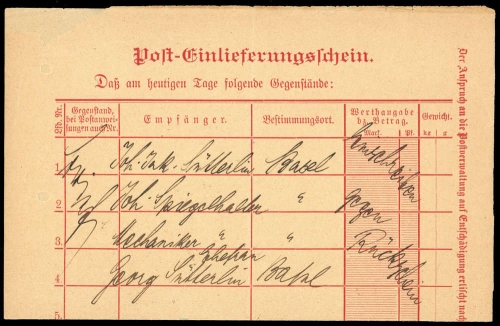 Post-Einlieferungsschein.
Daß am heutigen Tage folgende Gegenstände:
Lfd. Nr.
Gegenstand, bei Postanweisungen auch Nr.
Empfänger.
Bestimmungsort.
Werthangabe bz. Betrag.
Mark. Pf.
Gewicht.
kg g
1 Joh. Jak. Sütterlin Basel
2 Joh. Spiegelhalter "
3 Mechaniker " Ehefrau "
4 Georg Sütterlin Basel
5.
Einschreiben
gegen
Rückschein
Der Anspruch an die Postverwaltung auf Entschädigung erlischt nach